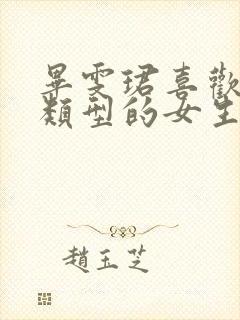 畢雯珺喜歡
類型的女生
趙玉芝